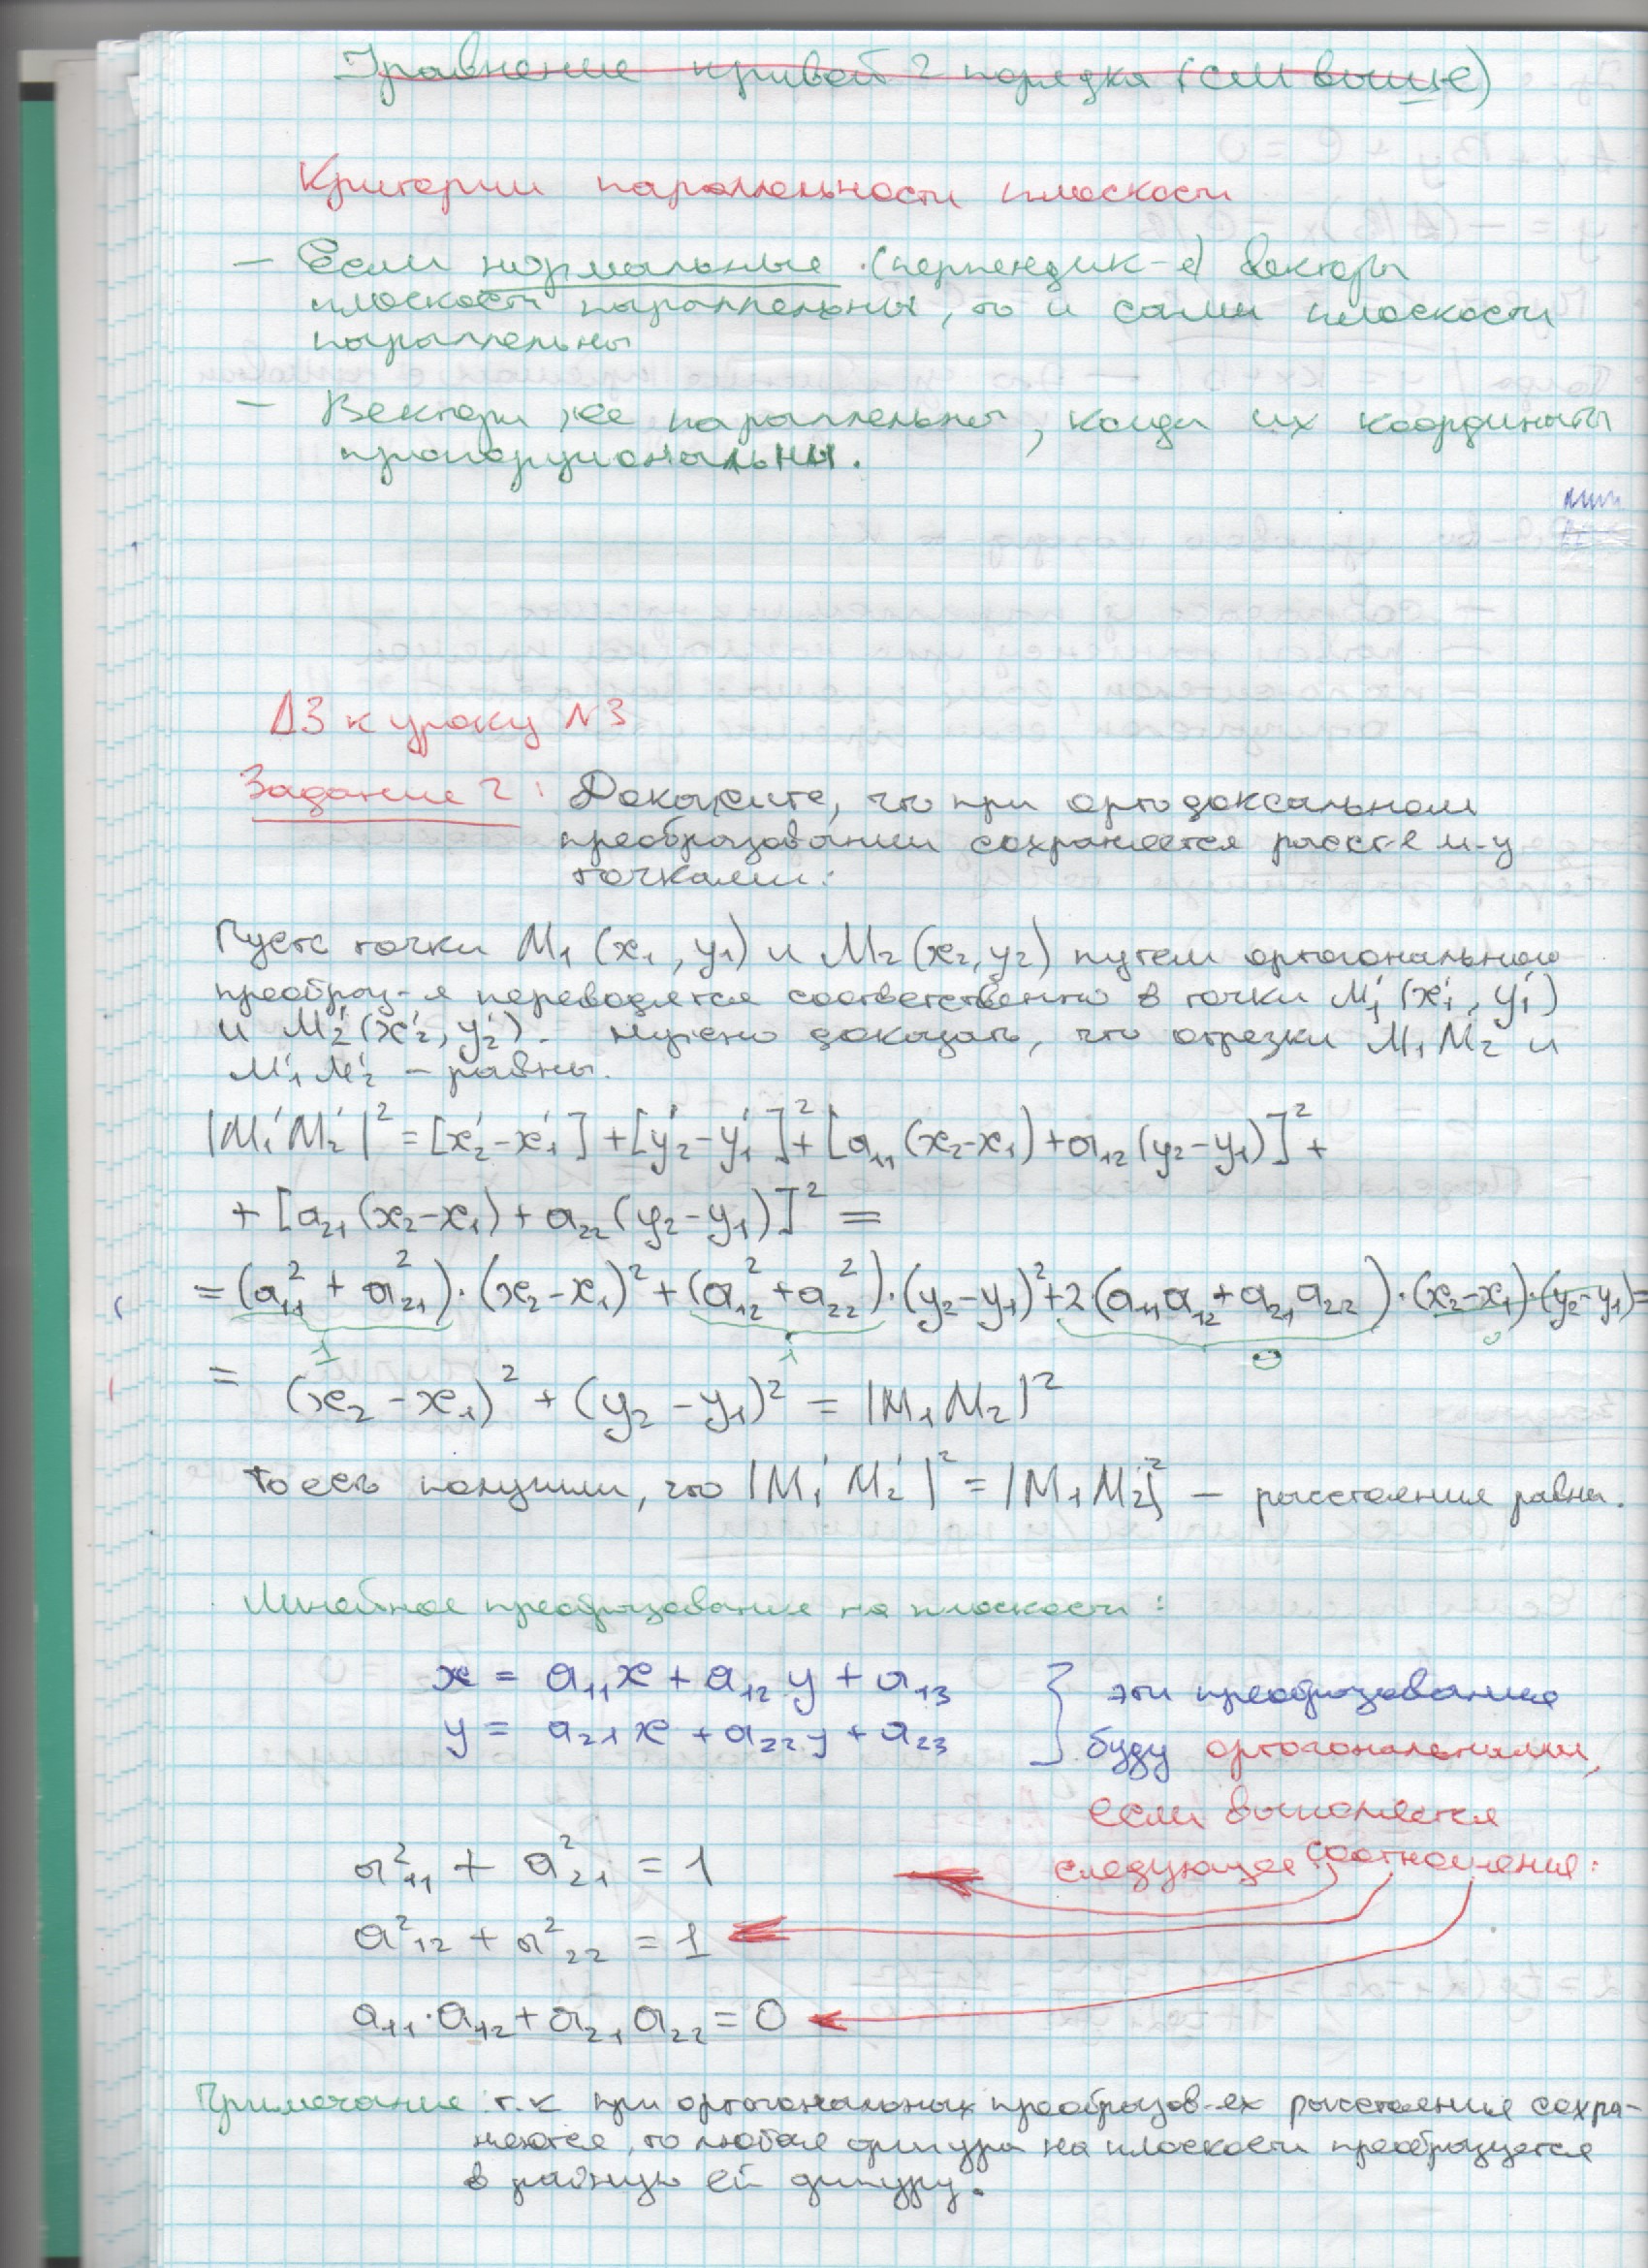 Уравнение кривой 2 порядка (см выше)
Критерии параллельности плоскости
— Если нормальные (перпендик-е) векторы
плоскости параллельны, то и сами плоскости
параллельны
— Вектора же параллельны, когда их координаты
пропорциональны.
ДЗ к уроку №3
Задание 2: Докажите, что при ортодоксальном
преобразовании сохраняется расст-е м-у
точками:
Пусть точки M₁ (x₁, y₁) и M₂ (x₂, y₂) путем ортогонального
преобраз-я переводятся соответственно в точки M₁' (x₁', y₁')
и M₂' (x₂', y₂'). Нужно доказать, что отрезки M₁M₂ и
M₁'M₂' – равны.
|M₁'M₂'|² = [x₂'-x₁'] + [y₂'-y₁']² + [a₁₁(x₂-x₁) + a₁₂(y₂-y₁)]² +
+ [a₂₁(x₂-x₁) + a₂₂(y₂-y₁)]² =
= (a₁₁² + a₂₁²)·(x₂-x₁)² + (a₁₂² + a₂₂²)·(y₂-y₁)² + 2(a₁₁a₁₂ + a₂₁a₂₂)·(x₂-x₁)·(y₂-y₁) =
1 1 0
= (x₂-x₁)² + (y₂-y₁)² = |M₁M₂|²
То есть получили, что |M₁'M₂'|² = |M₁M₂|² – расстояния равны.
Линейное преобразование на плоскости:
x = a₁₁x + a₁₂y + a₁₃ } эти преобразования
y = a₂₁x + a₂₂y + a₂₃ буду ортогональными,
если выполняется
a²₁₁ + a²₂₁ = 1 следующее соотношения:
a²₁₂ + a²₂₂ = 1
a₁₁·a₁₂ + a₂₁a₂₂ = 0
Примечание: т.к при ортогональных преобразов-ях расстояния сохра-
няются, то любая фигура на плоскости преобразуется
в равную ей фигуру.